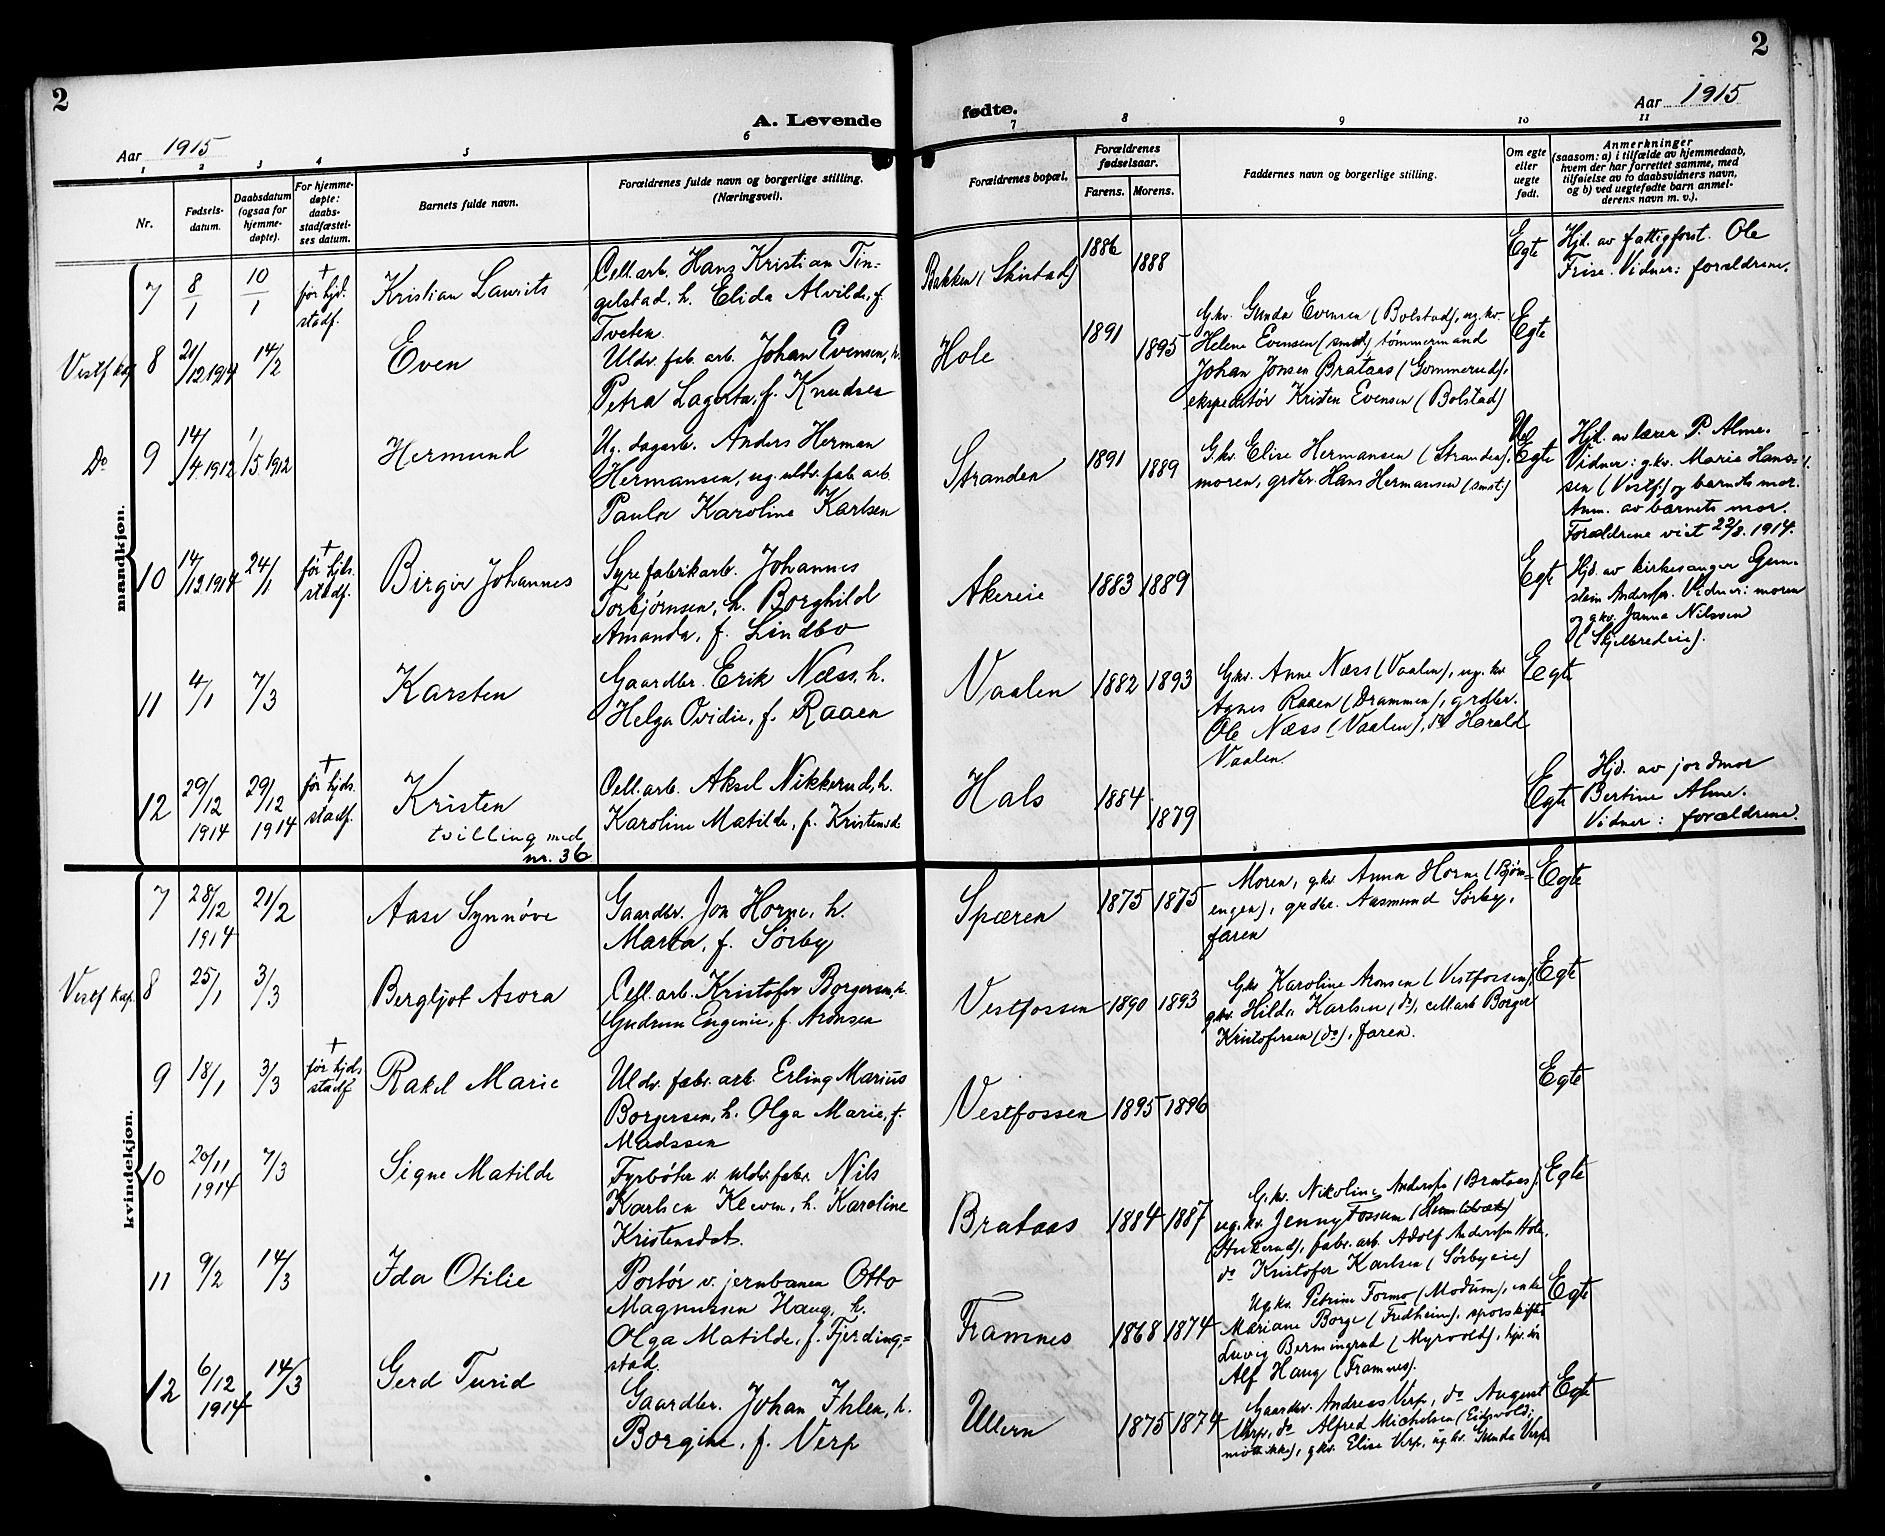 2
A. Levende
fødte.
2
Aar 1915
Aar 1915
1
2
3
4
5
6
7
8
9
10
11
Nr.
Fødsels-
datum.
Daabsdatum
(ogsaa for
hjemme-
døpte).
For hjemme-
døpte:
daabs-
stadfæstel-
ses datum.
Barnets fulde navn.
Forældrenes fulde navn og borgerlige stilling.
(Næringsvei).
Forældrenes bopæl.
Forældrenes
fødselsaar.
Farens.
Morens.
Faddernes navn og borgerlige stilling.
Om egte
eller
uegte
født.
Anmerkninger
(saasom: a) i tilfælde av hjemmedaab,
hvem der har forrettet samme, med
tilføielse av to daabsvidners navn,
og b) ved uegtefødte barn anmel-
derens navn m. v.).
mandkjøn.
7
8/1
10/1
+
før hjd.
stadf.
Kristian Laurits
Cell. arb. Hans Kristian Tin-
gelstad, h. Elida Alvilde, f.
Tveten
Bakken (Skistad)
1886
1888
Egte
Hjd. av fattigforst. Ole
Frise. Vidner: forældrene.
Vestf kap.
8
21/12 1914
14/2
Even
Uldv. fab. arb. Johan Evensen, h.
Petra Lagerta, f. Knudsen
Hole
1891
1895
Gkv. Gunda Evensen (Bolstad), ug. kv.
Helene Evensen (smst) tømmermand
Johan Jonsen Brataas (Gommerud),
ekspeditør Kristen Evensen (Bolstad)
Egte
Do
9
14/4 1912
1/5 1912
Hermund
Ug. dagarb. Anders Herman
Hermansen, ug. uldv. fab. arb.
Paula Karoline Karlsen
Stranden
1891
1889
Gkv. Elise Hermansen (Stranden),
moren, grdbr. Hans Hermansen (smst.)
Uegte
Hjd. av lærer P. Alme.
Vidner: gkv. Marie Hans-
sen (Vestf.) og barnets mor.
Anm. av barnets mor.
Forældrene viet 22/3. 1914.
10
14/12 1914
24/1
+
før hjds.
stadf.
Birger Johannes
Syrefabrikarb. Johannes
Torbjørnsen, h. Borghild
Amanda, f. Lindbo
Akereie
1883
1889
Egte
Hjd. av kirkesanger Gun-
stein Andersen. Vidner: moren
og gkv. Janna Nilssen
(Skjelbredeie).
11
4/1
7/3
Karsten
Gaardbr. Erik Næss, h.
Helga Ovidie, f. Raaen
Vaalen
1882
1893
Gkv. Anne Næss (Vaalen), ug. kv.
Agnes Raaen (Drammen), grdbr.
Ole Næss (Vaalen), do Harald
Vaalen.
Egte
12
29/12
1914
29/12
1914
+
før hjds.
stadf.
Kristen
tvilling med
nr. 36
Cell. arb. Aksel Nikkerud, h.
Karoline Matilde, f. Kristensd.
Hals
1884
1879
Egte
Hjd. av jordmor
Bertine Alme.
Vidner: forældrene.
kvindekjøn.
7
28/12
1914
21/2
Aase Synnøve
Gaardbr. Jon Horne, h.
Marta, f. Sørby
Spæren
1875
1875
Moren, gkv. Anna Horne (Bjøn-
engen), grdbr. Aasmund Sørby,
faren
Egte
Vestf kap.
8
25/1
3/3
Bergljot Asora
Cell. arb. Kristofer Borgersen, h.
Gudrun Eugenie, f. Aronsen
Vestfossen
1890
1893
Gkv. Karoline Aronsen (Vestfossen),
gkv. Hilda Karlsen (do), cell. arb. Borger
Kristofersen (do), faren.
Egte
9
18/1
3/3
+
før hjds
stadf
Rakel Marie
Uldv. fabr. arb. Erling Marius
Borgersen, h. Olga Marie, f.
Madssen
Vestfossen
1895
1896
Egte
10
20/11
1914
7/3
Signe Matilde
Fyrbøter v. uldv. fabr. Nils
Karlsen Kleven, h. Karoline
Kristensdat.
Brataas
1884
1887
Gkv. Nikoline Andersen (Brataas),
ug. kv. Jenny Fossum
fabr. arb. Adolf Andersen Hole,
do Kristofer Karlsen (Sørbyeie)
Egte
11
9/2
14/3
Ida Otilie
Portør v. jernbanen Otto
Magnussen Haug, h.
Olga Matilde, f. Fjerding-
stad.
Framnes
1868
1874
Ug. kv. Petrine Formo (Modum), enke
Mariane Borge (Fredheim), sporskifter
Luvig Bermingrud (Myrvold),
Alf Haug (Framnes).
Egte
12
6/12
1914
14/3
Gerd Turid
Gaardbr. Johan Ihlen, h.
Borgine, f. Verp
Ullern
1875
1874
Gaardbr. Andreas Verp, do August
Verp, do Alfred Michelsen (Eidsvold;
møtte ikke), gkv. Elise Verp, ug. kv. Gunda Verp
Egte